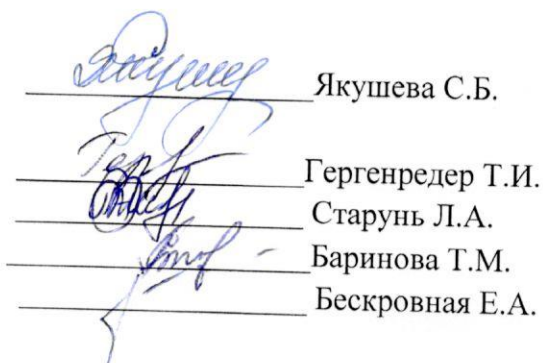 Якушева С.Б.
Гергенредер Т.И.
Старунь Л.А.
Баринова Т.М.
Бескровная Е.А.